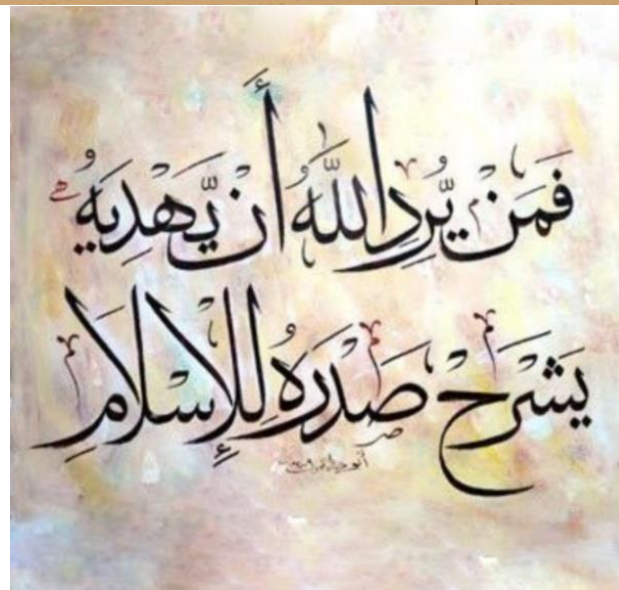 فَمَنْ يُّرِدِ اللَّهُ أَنْ يَّهْدِيَهُ
يَشْرَحْ صَدْرَهُ لِلْإِسْلَامِ